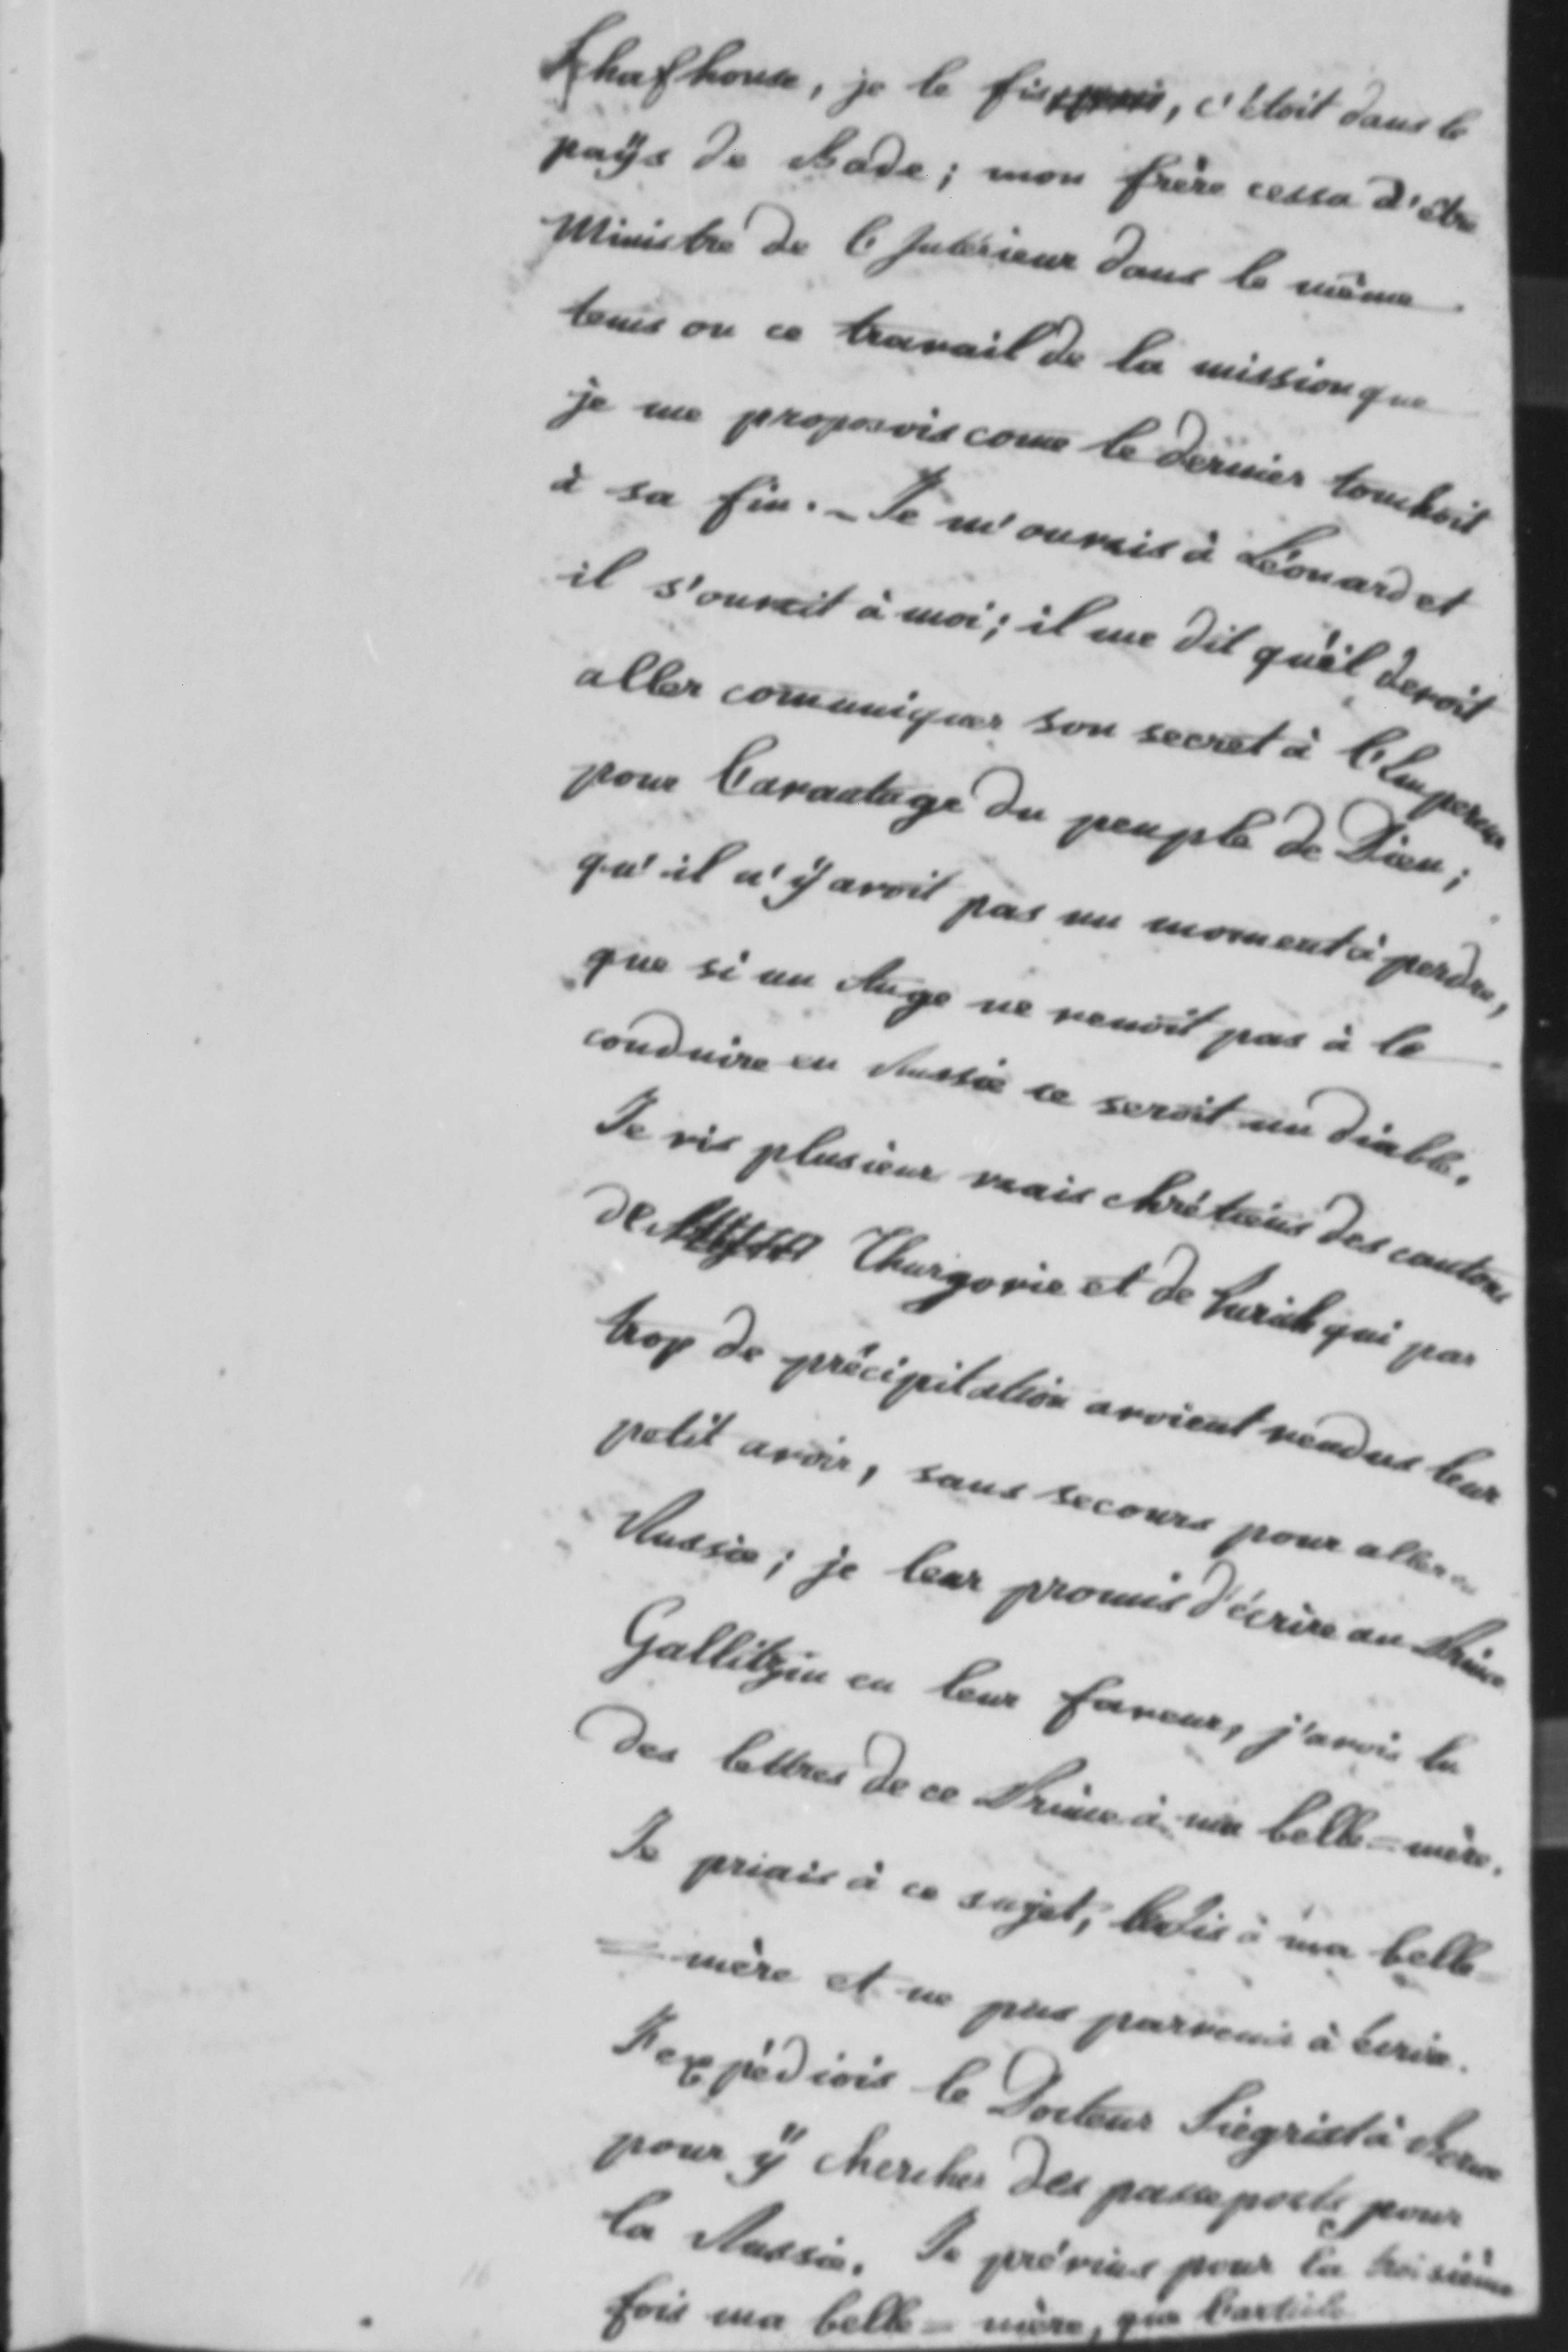 Schafhouse, je le fis, c'étoit dans le
paÿs de Bade; mon frère cessa d'être
Ministre de l'Intérieur dans le même
tems ou ce travail de la mission que
je me proposois come le dernier touchoit
à sa fin. – Je m'ouvris à Léonard et
il s'ouvrit à moi; il me dit qu'il devoit
aller comuniquer son secret à l'Empereur
pour l'avantage du peuple de Dieu;
qu'il n'ÿ avoit pas un moment à perdre,
que si un Ange ne venoit pas à le
conduire en Russie ce seroit un diable.
Je vis plusieur vrais chrétiens des cantons
de Thurgovie et de Zurich qui par
trop de précipitation avoient vendus leur
petit avoir, sans secours pour aller en
Russie; je leur promis d'écrire au Prince
Gallitzin en leur faveur, j'avois lu
des lettres de ce Prince à ma belle=mère.
Je priais à ce sujet, le dis à ma belle=
=mère et ne pus parvenir à écrire.
J'expédiois le Docteur Siegrist à Berne
pour ÿ chercher des passeports pour
la Russie. Je prévins pour la troisième
fois ma belle=mère, que l'article